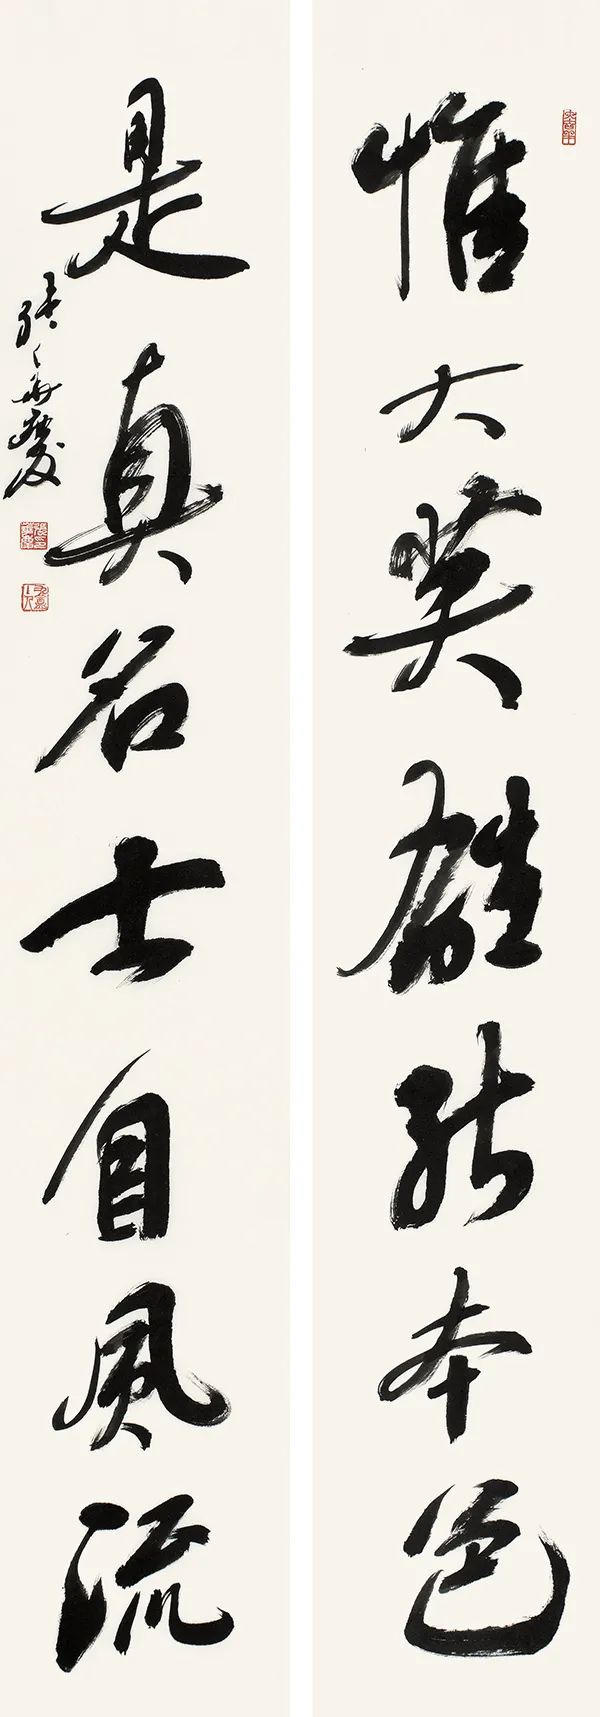 惟大英雄能本色
是真名士自风流
张华庆